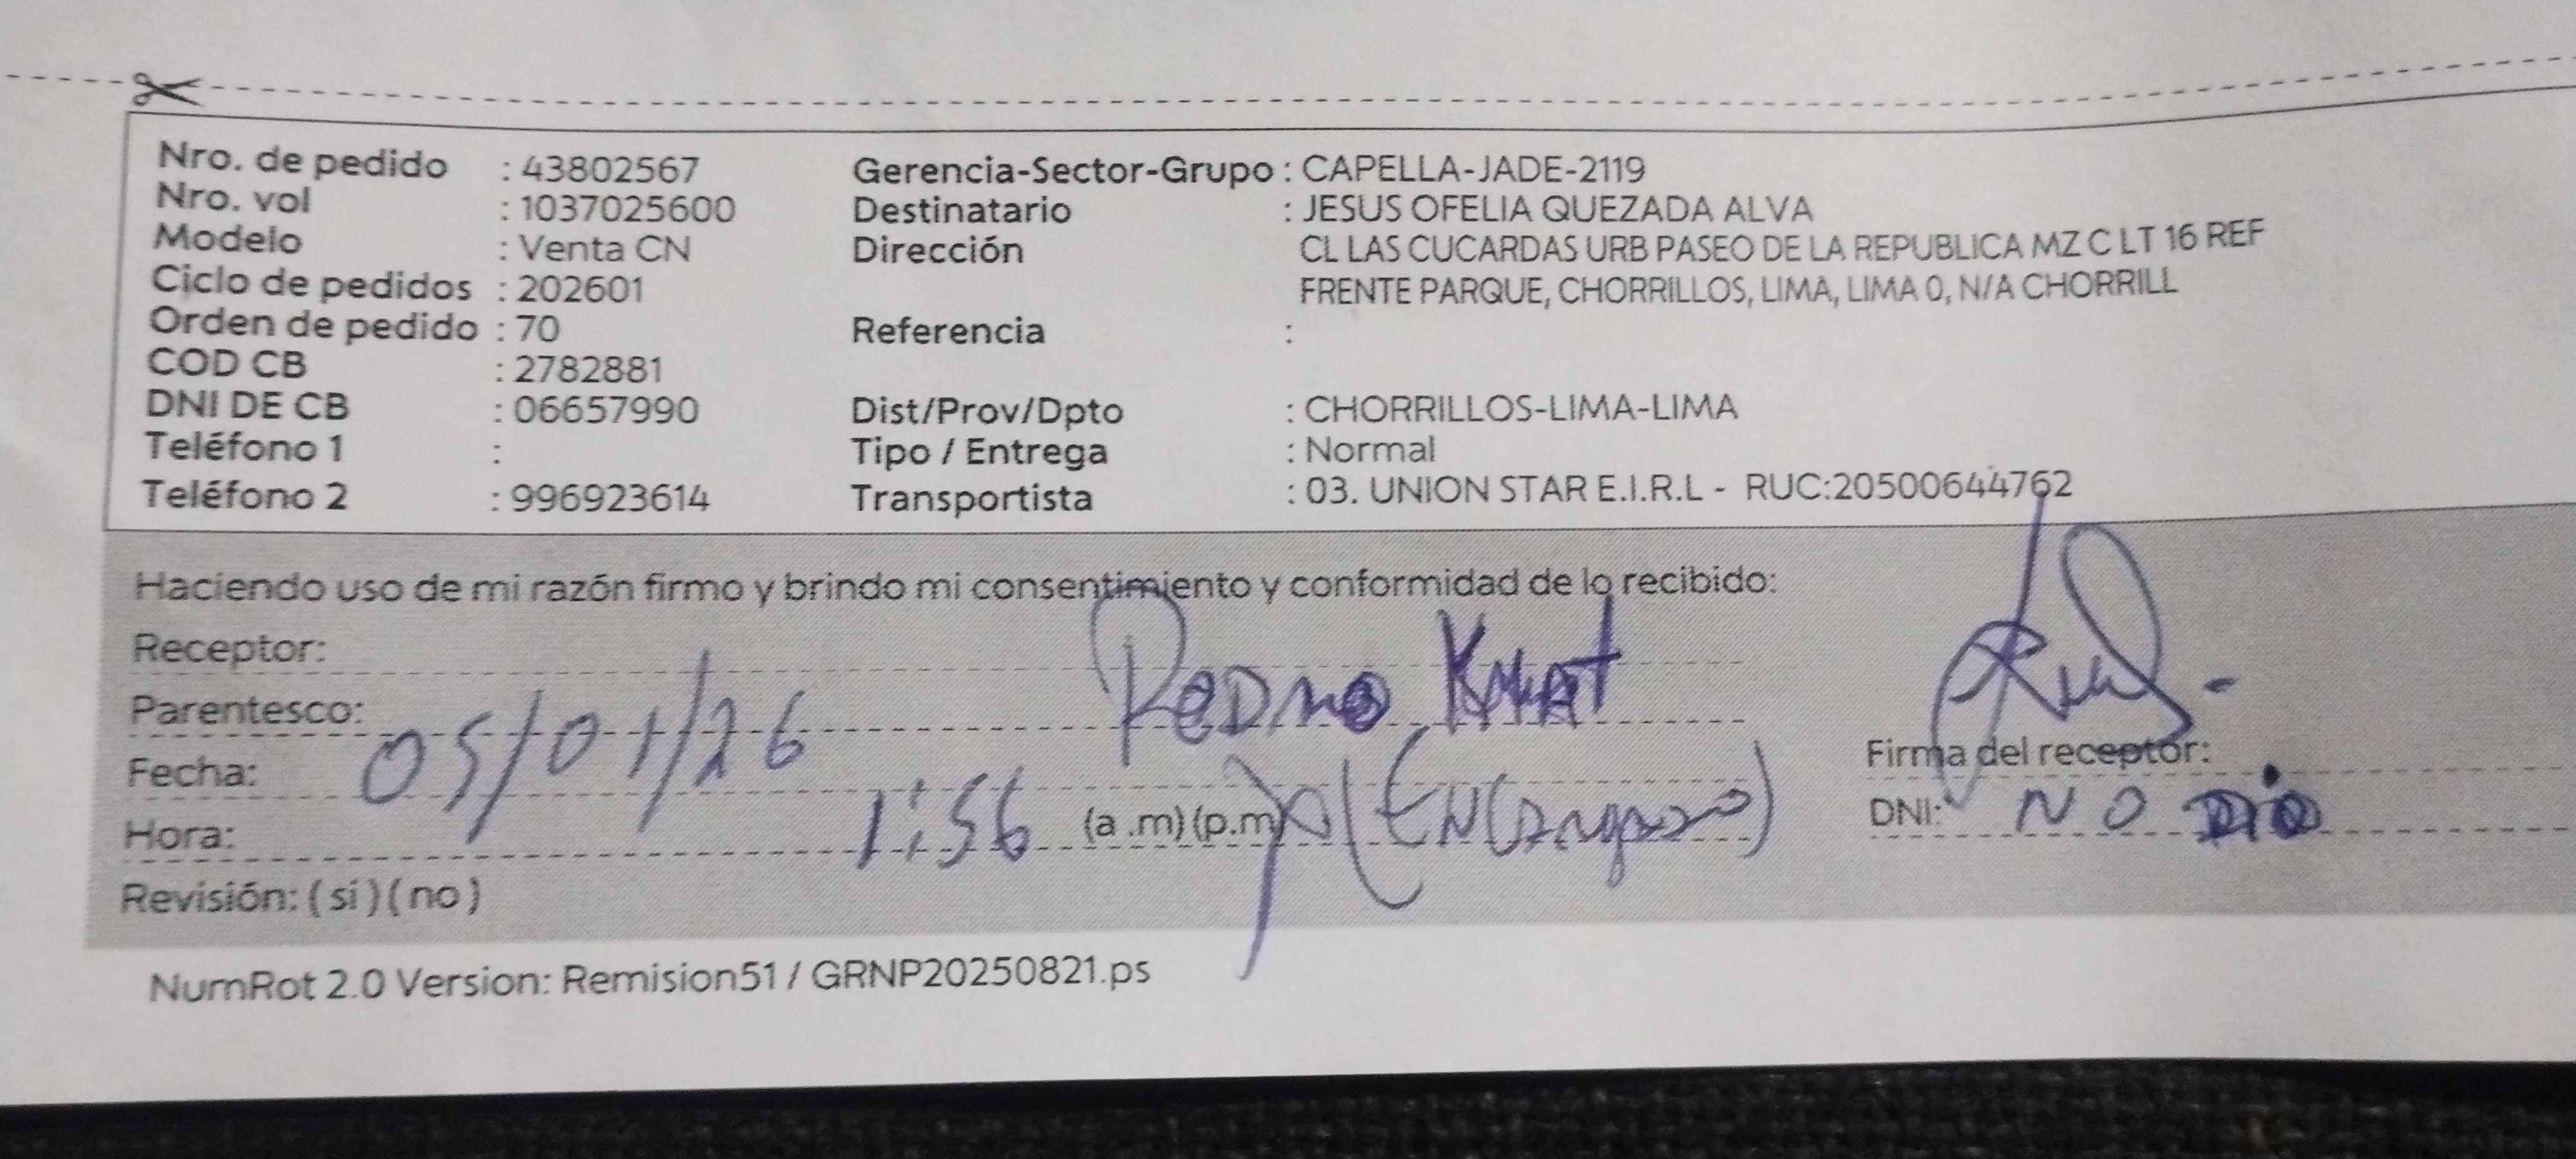 Nro. de pedido : 43802567
Nro. vol : 1037025600
Modelo : Venta CN
Ciclo de pedidos : 202601
Orden de pedido : 70
COD CB : 2782881
DNI DE CB : 06657990
Teléfono 1 :
Teléfono 2 : 996923614
Gerencia-Sector-Grupo : CAPELLA-JADE-2119
Destinatario : JESUS OFELIA QUEZADA ALVA
Dirección CL LAS CUCARDAS URB PASEO DE LA REPUBLICA MZ C LT 16 REF
FRENTE PARQUE, CHORRILLOS, LIMA, LIMA 0, N/A CHORRILL
Referencia :
Dist/Prov/Dpto : CHORRILLOS-LIMA-LIMA
Tipo / Entrega : Normal
Transportista : 03. UNION STAR E.I.R.L - RUC:20500644762
Haciendo uso de mi razón firmo y brindo mi consentimiento y conformidad de lo recibido:
Receptor: Pedro
Parentesco:
Fecha: 05/01/26
Hora: 1:56 (a .m) (p.m)
Revisión: ( si ) ( no )
Firma del receptor:
DNI: NO DIO
NumRot 2.0 Version: Remision51 / GRNP20250821.ps